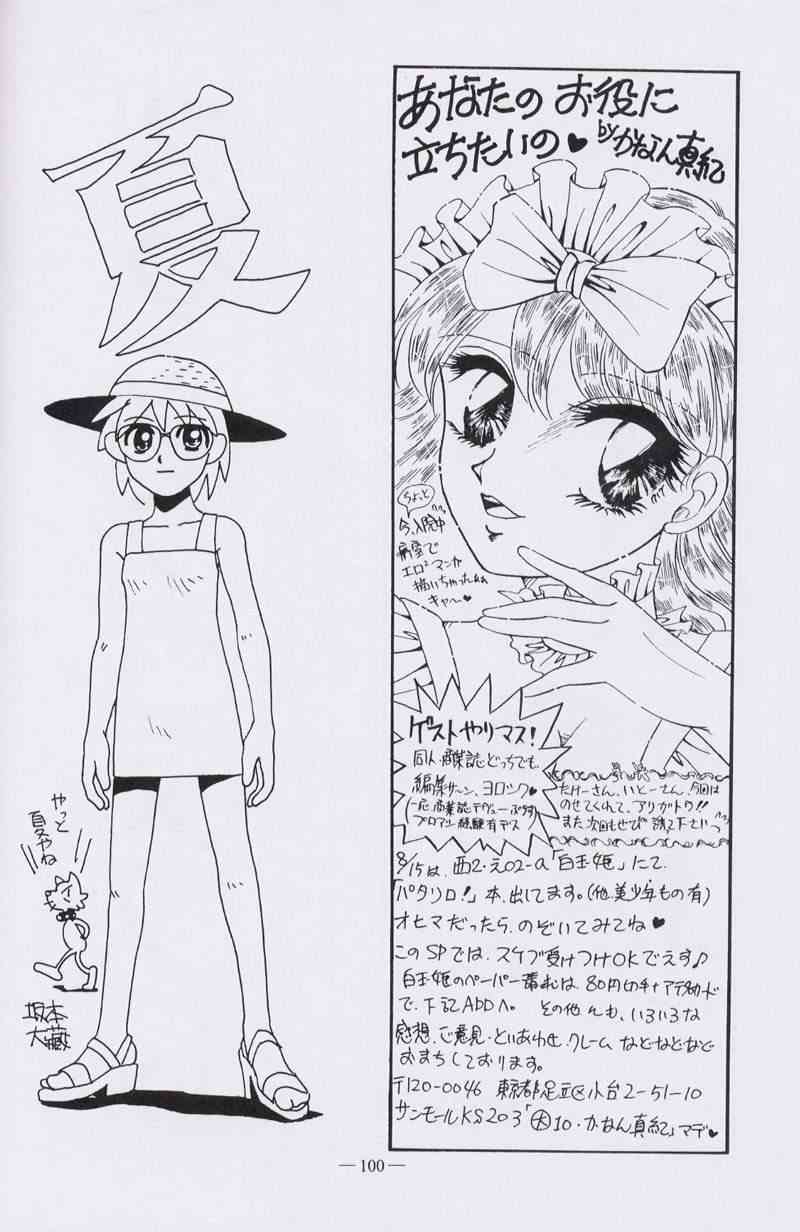 あなたの お役に
立ちたいの♥ byかなん真紀
ちょっと
今、入院中
病室で
エロマンガ
描いちゃったわ
キャー♥
ゲストやりマス!
同人・商業誌どっちでも
編集サーン、ヨロシク♥
(一応商業誌デヴューぶっす
プロアシ経験有デス
たけーさん、いとーさん、今回は
のせてくれて、アリガトウ!!
また次回もぜひ誘て下さいっ
8/15は、西2・え02-a「白玉姫」にて
「パタリロ!」本、出してます。(他、美少年もの有)
オヒマだったら、のぞいてみてね♥
このSPでは、スケブ受けつけOKでえす♪
白玉姫のペーパー希望は、80円切手+アテ名カード
で、下記ADDへ。 その他にも、いろいろな
感想、ご意見・といあわせ、クレームなどなどなど
おまちしております。
〒120-0046 東京都足立区小台2-51-10
サンモールKS203「㊛10・かなん真紀」マデ♥
夏
やっと
夏やね
坂本
大蔵
— 100 —